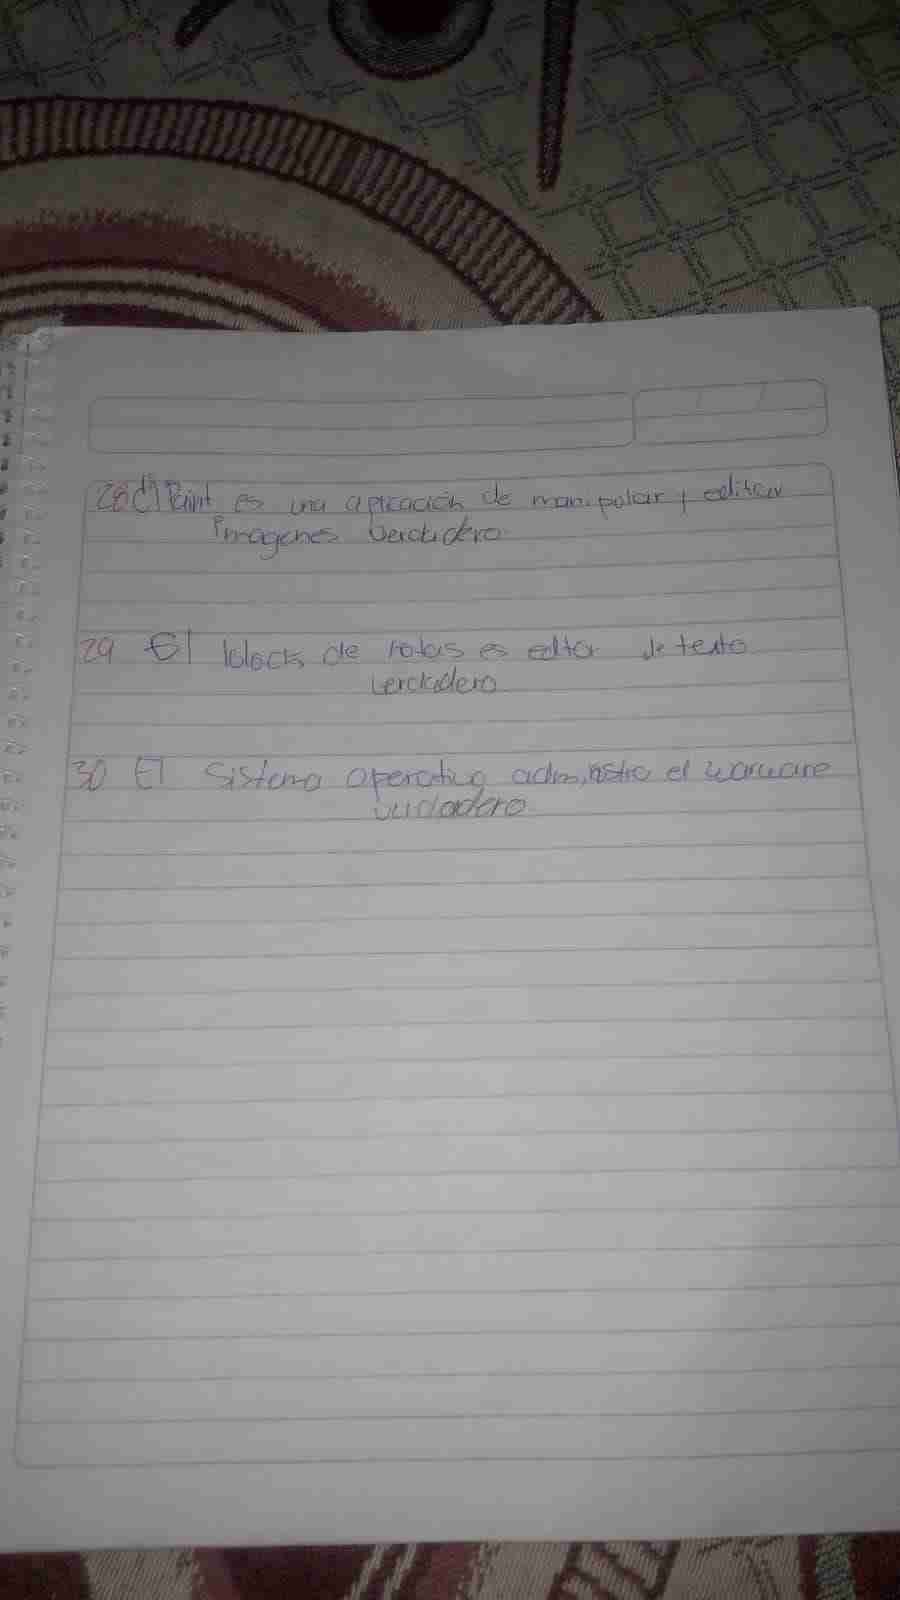 28 Paint es una aplicación de manipular y editar
imagenes Verdadero
29 El block de notas es editor de texto
Verdadero
30 El Sistema operativo administra el warware
verdadero